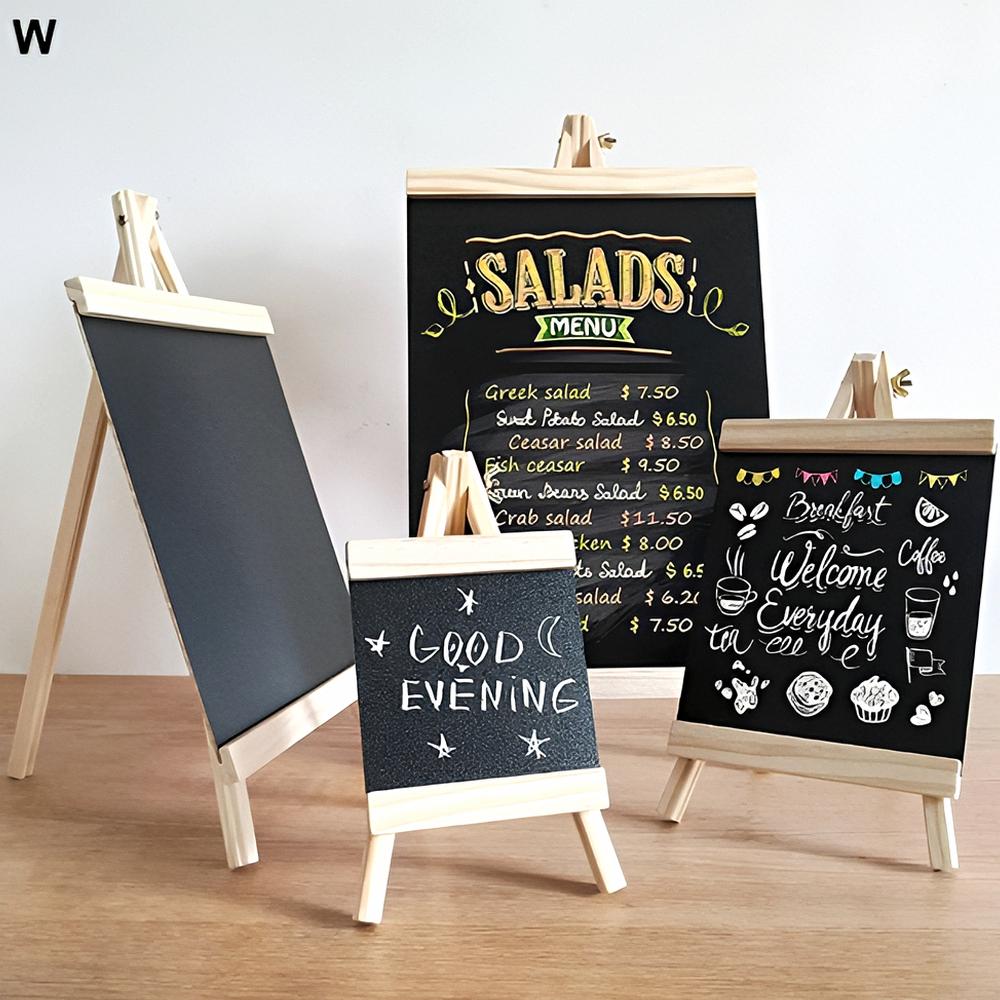 W
SALADS
MENU
Greek salad $ 7.50
Sweet Potato Salad $ 6.50
Ceasar salad $ 8.50
Fish ceasar $ 9.50
Green Beans Salad $ 6.50
Crab salad $11.50
cken $ 8.00
Salad $ 6.5
salad $ 6.2
$ 7.50
GOOD
EVENING
Breakfast
Coffee
Welcome
Everyday
tea